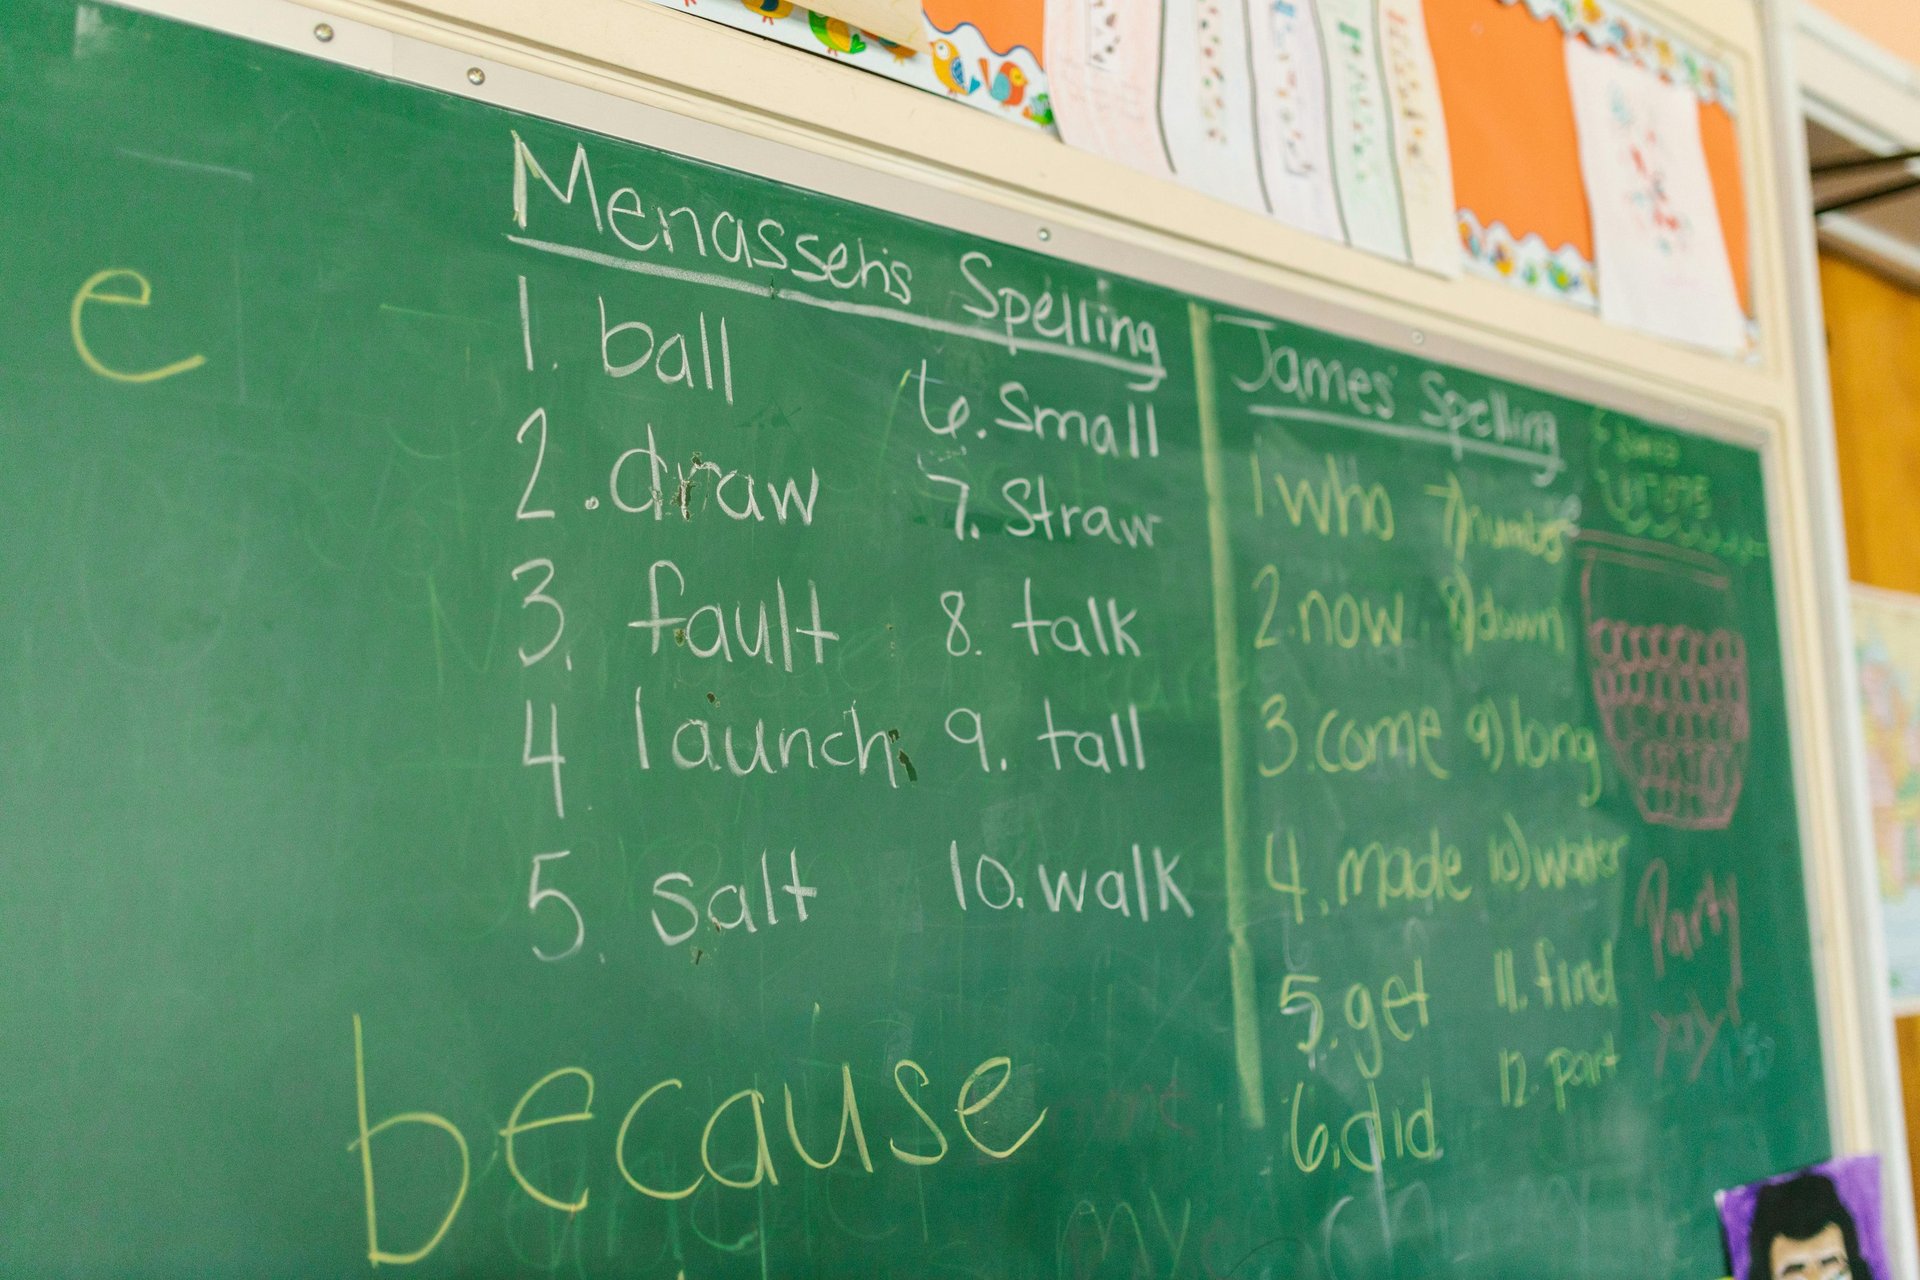 Menasseh's Spelling
1. ball
2. draw
3. fault
4 launch
5. salt
6. small
7. straw
8. talk
9. tall
10. walk
James' Spelling
1 who
2. now
3. come
4. made
5. get
6. did
7) number
8) down
9) long
10) water
11. find
12. part
Party
yay!
e
because